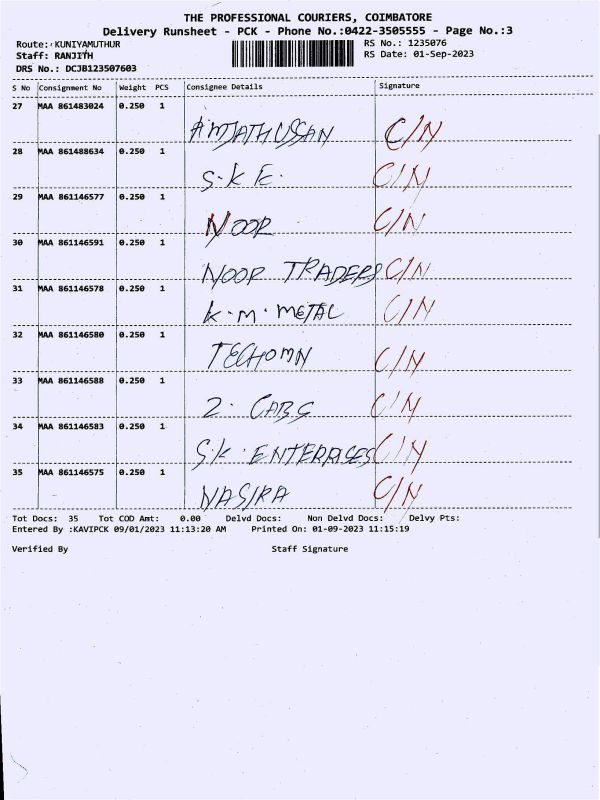 THE PROFESSIONAL COURIERS, COIMBATORE
Delivery Runsheet - PCK - Phone No.:0422-3505555 - Page No.:3
Route: KUNIYAMUTHUR RS No.: 1235076
Staff: RANJITH RS Date: 01-Sep-2023
DRS No.: DCJB123507603
S No Consignment No Weight PCS Consignee Details Signature
27 MAA 861483024 0.250 1
AMJATHUSSAN C/N
28 MAA 861488634 0.250 1
S.K E. C/N
29 MAA 861146577 0.250 1
NOOR C/N
30 MAA 861146591 0.250 1
NOOR TRADERS C/N
31 MAA 861146578 0.250 1
K.M.METAL C/N
32 MAA 861146580 0.250 1
C/N
33 MAA 861146588 0.250 1
C/N
34 MAA 861146583 0.250 1
S.K. ENTERPRISES C/N
35 MAA 861146575 0.250 1
NASIRA C/N
Tot Docs: 35 Tot COD Amt: 0.00 Delvd Docs: Non Delvd Docs: Delvy Pts:
Entered By :KAVIPCK 09/01/2023 11:13:20 AM Printed On: 01-09-2023 11:15:19
Verified By Staff Signature